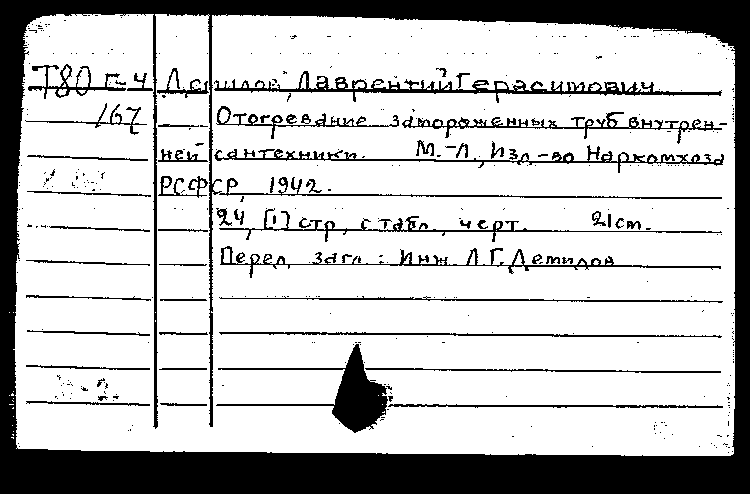 Т80 Г-4 Демидов, Лаврентий Герасимович
167 Отогревание замороженных труб внутрен-
ней сантехники. М.-Л., Изд-во Наркомхоза
РСФСР, 1942.
24, [1] стр, с табл., черт. 21 cm.
Перед загл.: Инж. Л.Г. Демидов